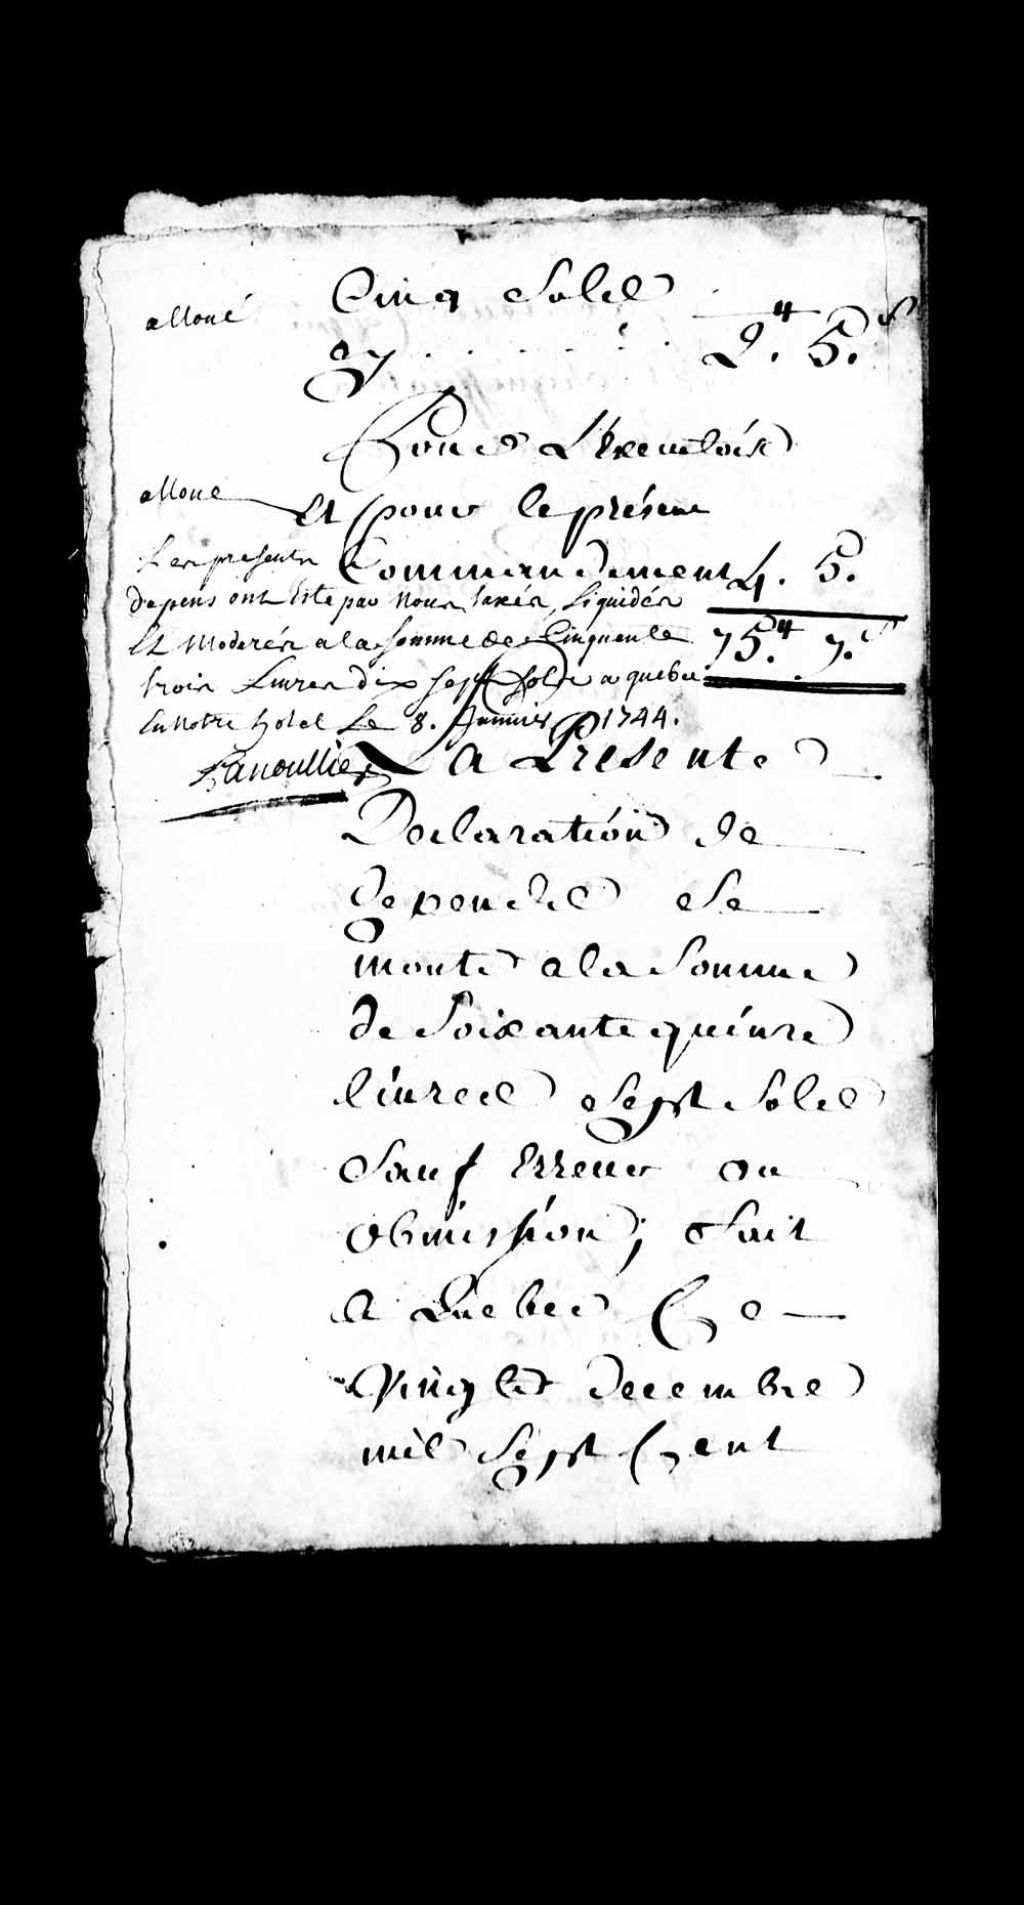 Cinq Solel
alloué
Cy . . . . . . 2.ʰ 5.ˢ
Pour L'Executoire
alloué
Et pour le présent
Commandement 4. 5.
75.ʰ 7.ˢ
Les presents
depens ont Esté par Nous taxés, Liquidés
Et Moderés a la somme de Cinquante
trois Livres dix sept sols a quebec
En Notre hotel Le 8. Janvier 1744.
Lanoullier
La Presente
Declaration de
depences Se
monte a la Somme
de Soixante quinze
livrees Sept Soles
Sauf Erreur ou
Obmission; Fait
A Quebec Ce
Vingt Decembre
mil Sept Cent